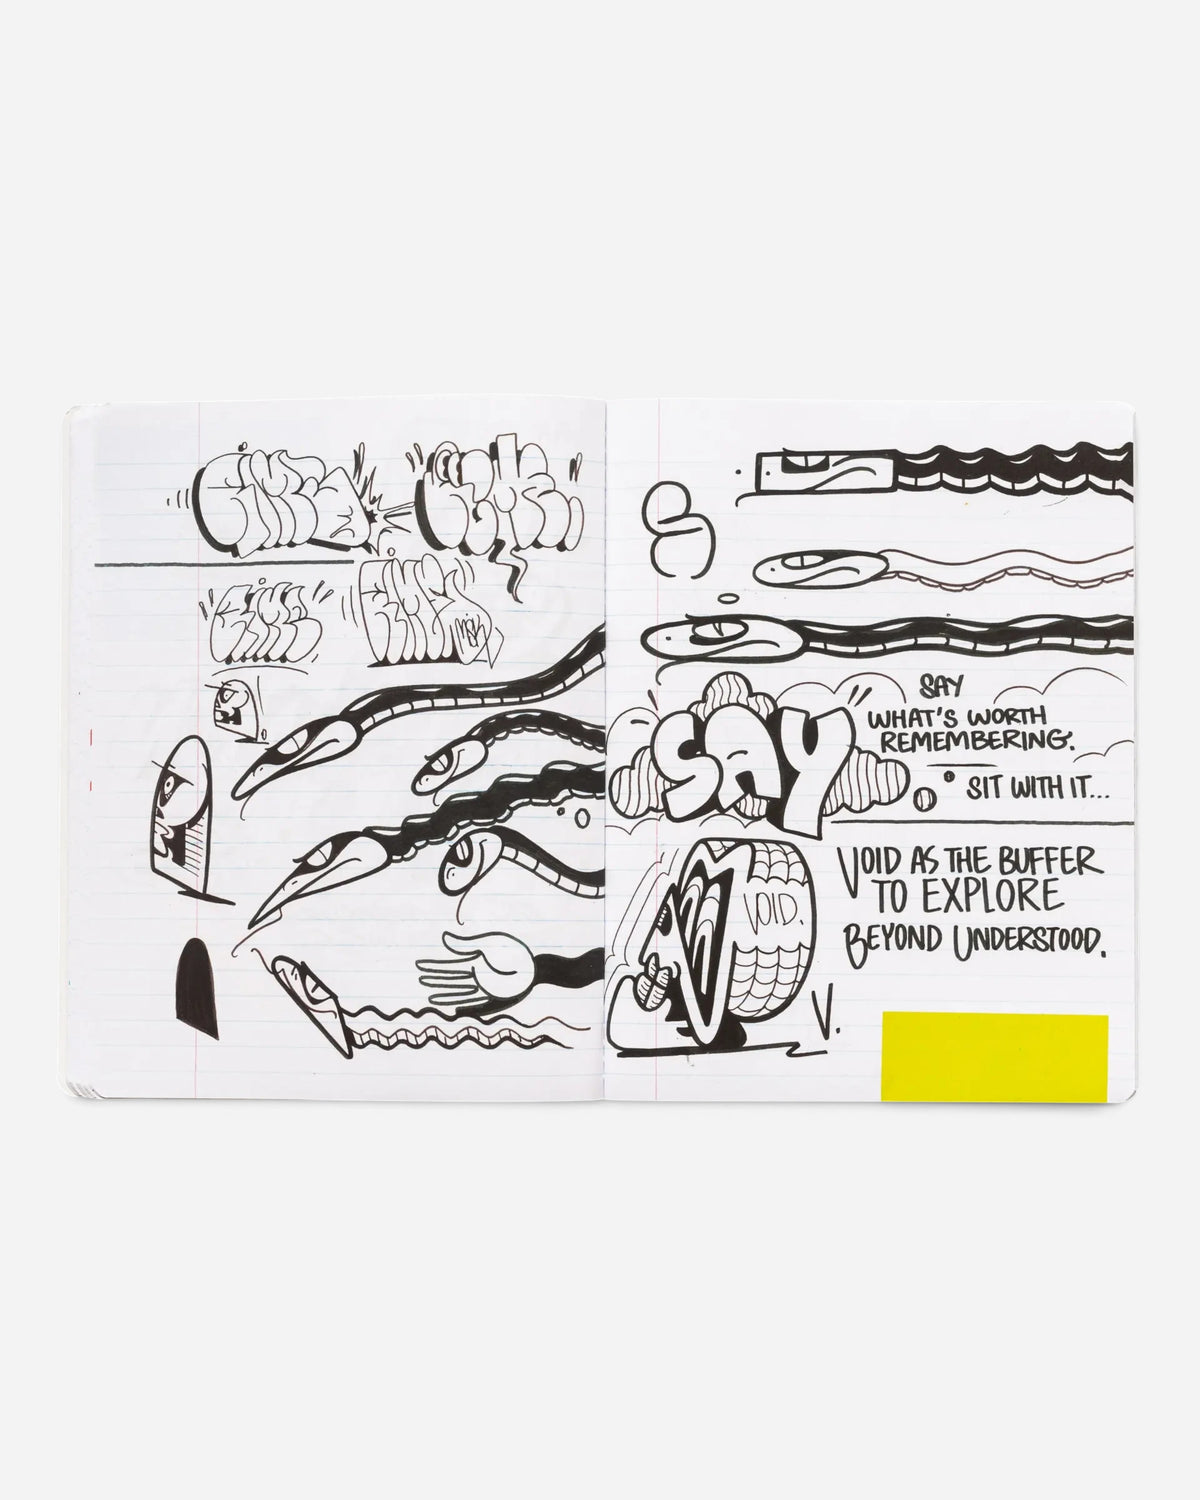 MSK
SAY
SAY
WHAT'S WORTH
REMEMBERING.
SIT WITH IT...
VOID AS THE BUFFER
TO EXPLORE
BEYOND UNDERSTOOD.
VOID.
V.